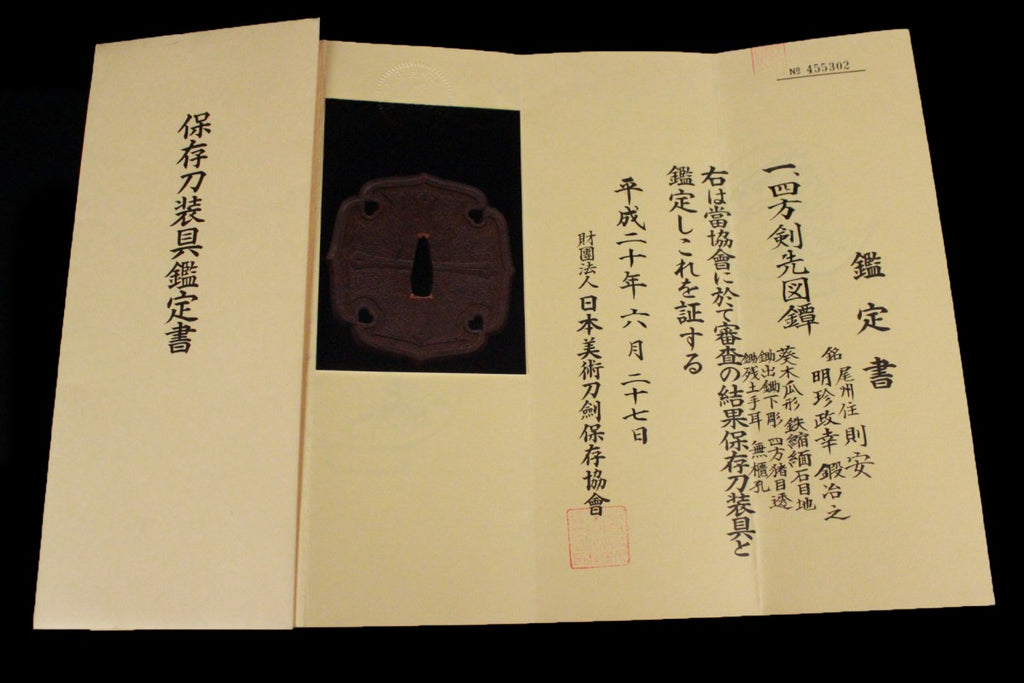 保存刀装具鑑定書
№ 455302
鑑定書
一、四方剣先図鐔
銘 尾州住則安
明珍政幸鍛冶之
葵木瓜形 鉄縮緬石目地
鋤出鋤下彫 四方猪目透
鋤残土手耳 無櫃孔
右は當協會に於て審査の結果保存刀装具と
鑑定しこれを証する
平成二十年六月二十七日
財團法人 日本美術刀劍保存協會